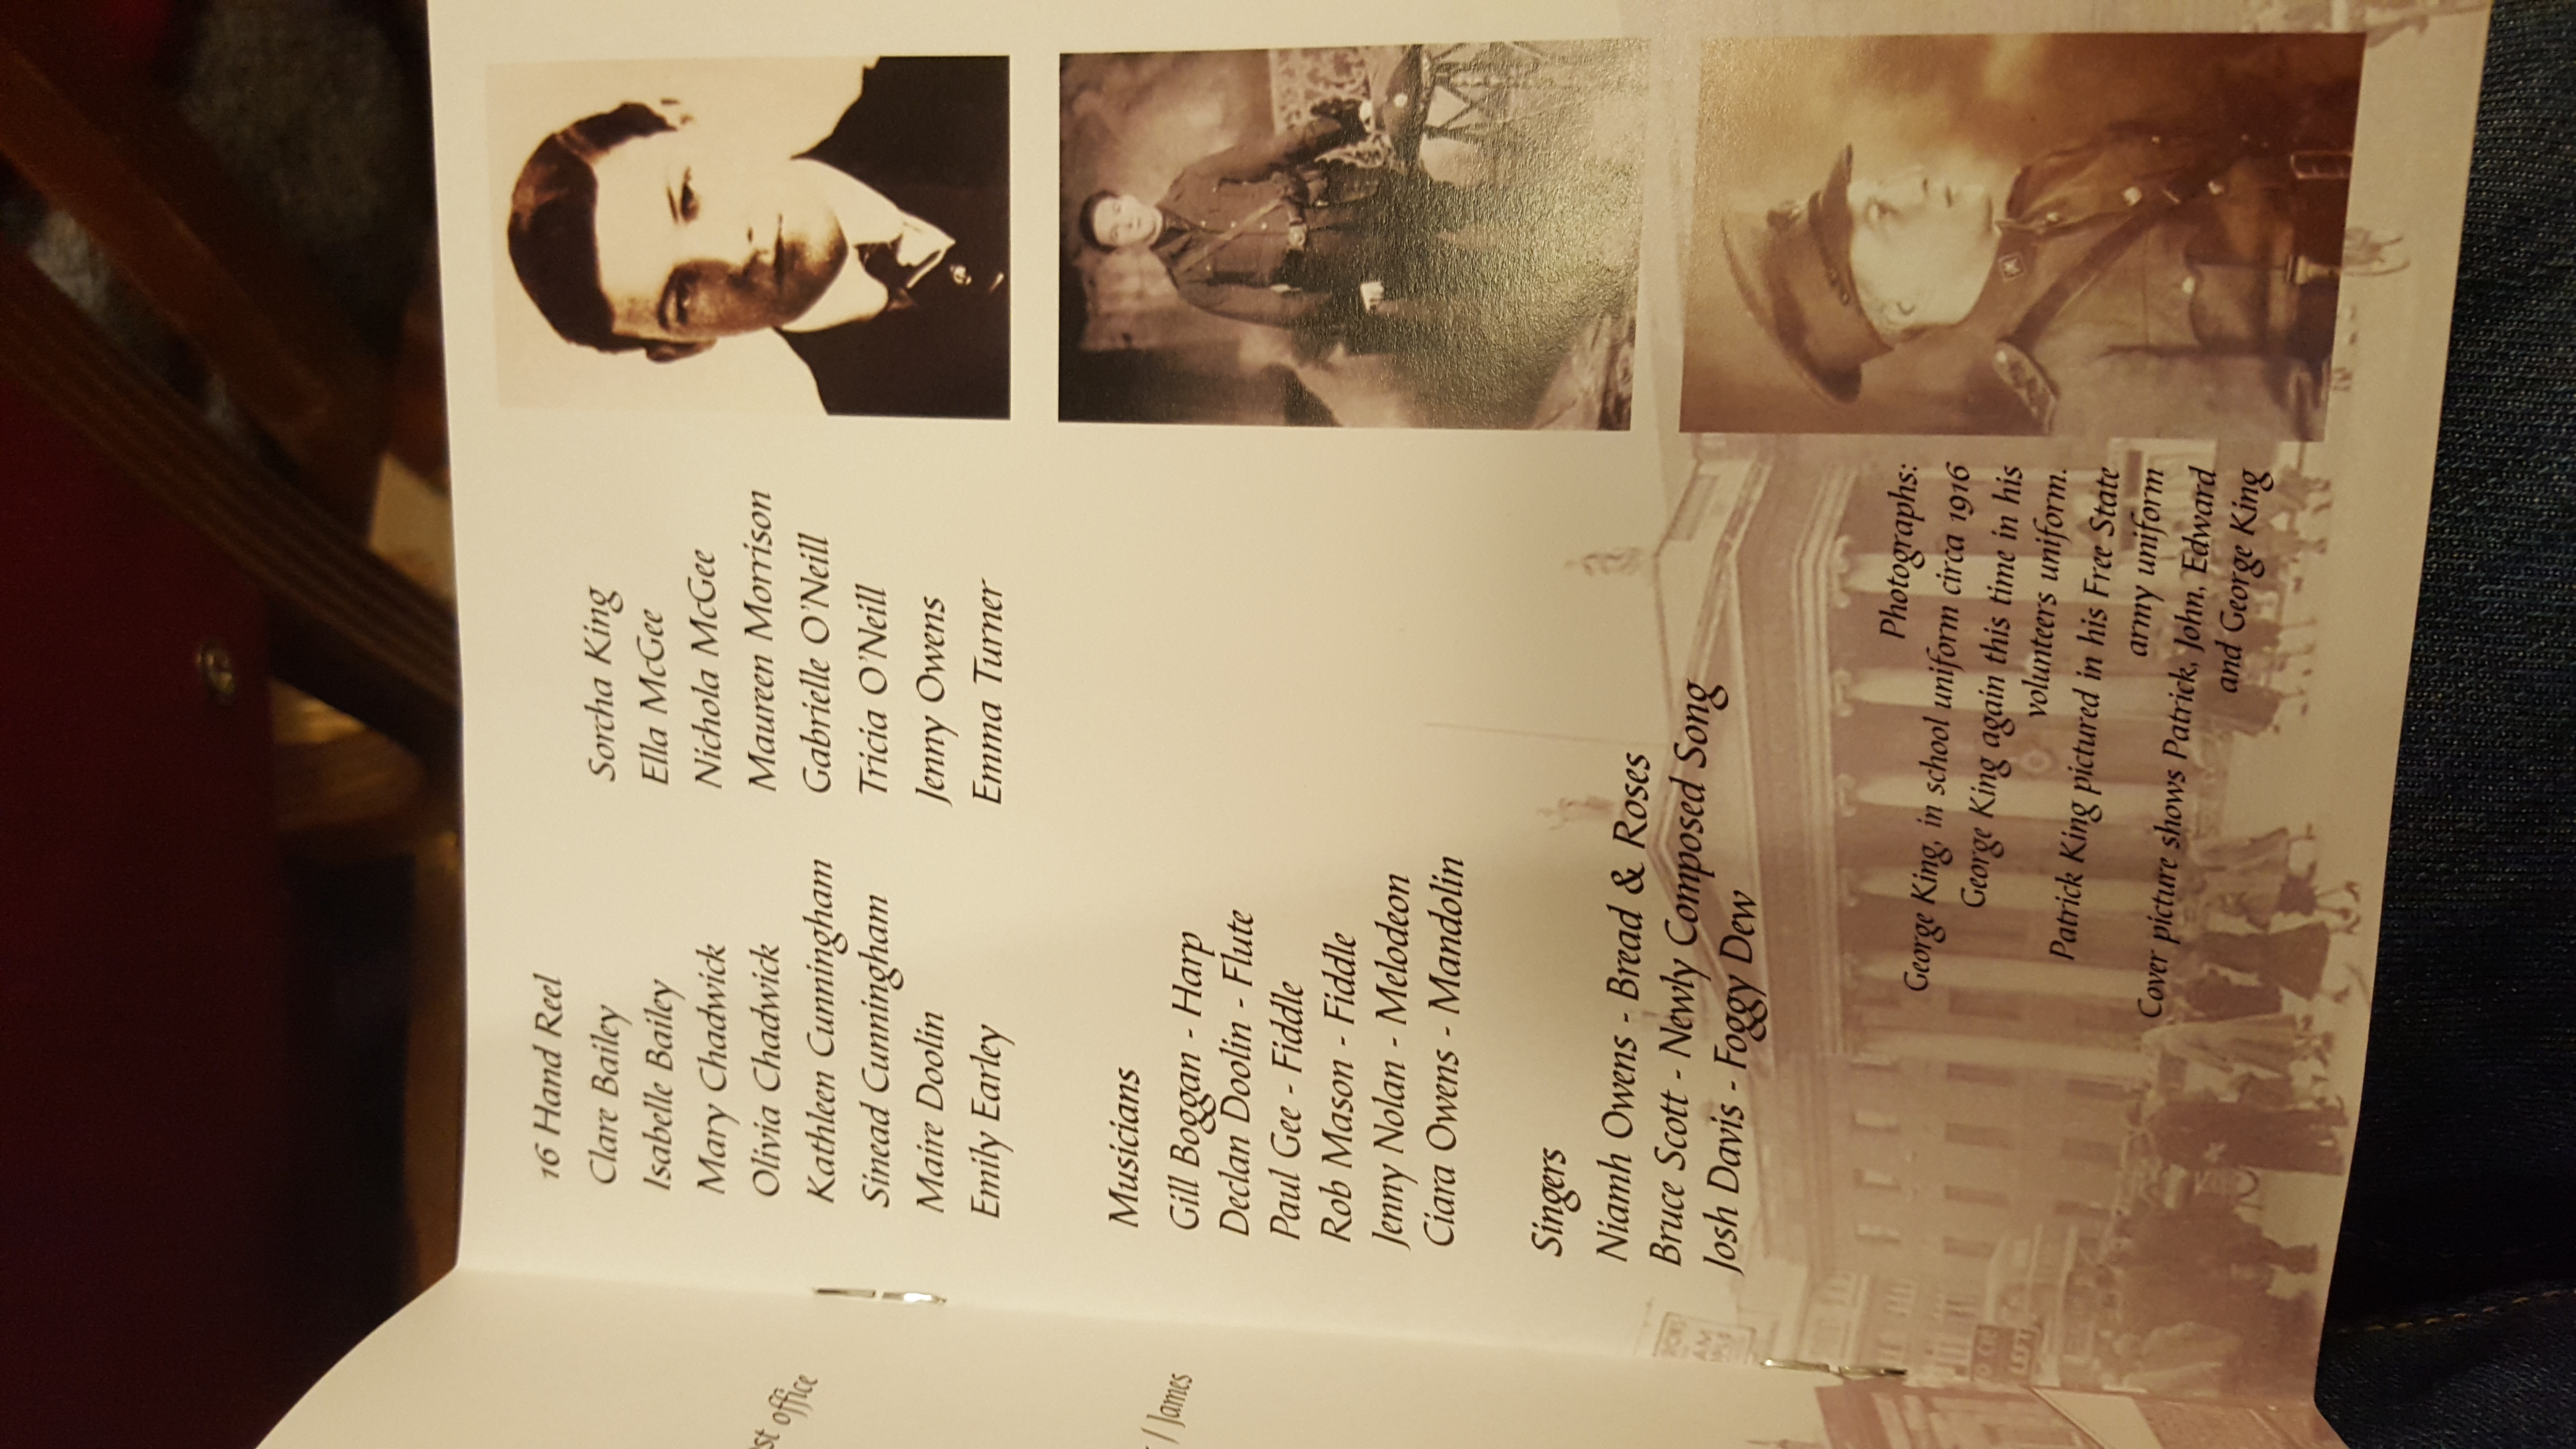 st office
/ James
16 Hand Reel
Clare Bailey
Isabelle Bailey
Mary Chadwick
Olivia Chadwick
Kathleen Cunningham
Sinead Cunningham
Maire Doolin
Emily Earley
Sorcha King
Ella McGee
Nichola McGee
Maureen Morrison
Gabrielle O'Neill
Tricia O'Neill
Jenny Owens
Emma Turner
Musicians
Gill Boggan - Harp
Declan Doolin - Flute
Paul Gee - Fiddle
Rob Mason - Fiddle
Jenny Nolan - Melodeon
Ciara Owens - Mandolin
Singers
Niamh Owens - Bread & Roses
Bruce Scott - Newly Composed Song
Josh Davis - Foggy Dew
Photographs:
George King, in school uniform circa 1916
George King again this time in his
volunteers uniform.
Patrick King pictured in his Free State
army uniform
Cover picture shows Patrick, John, Edward
and George King